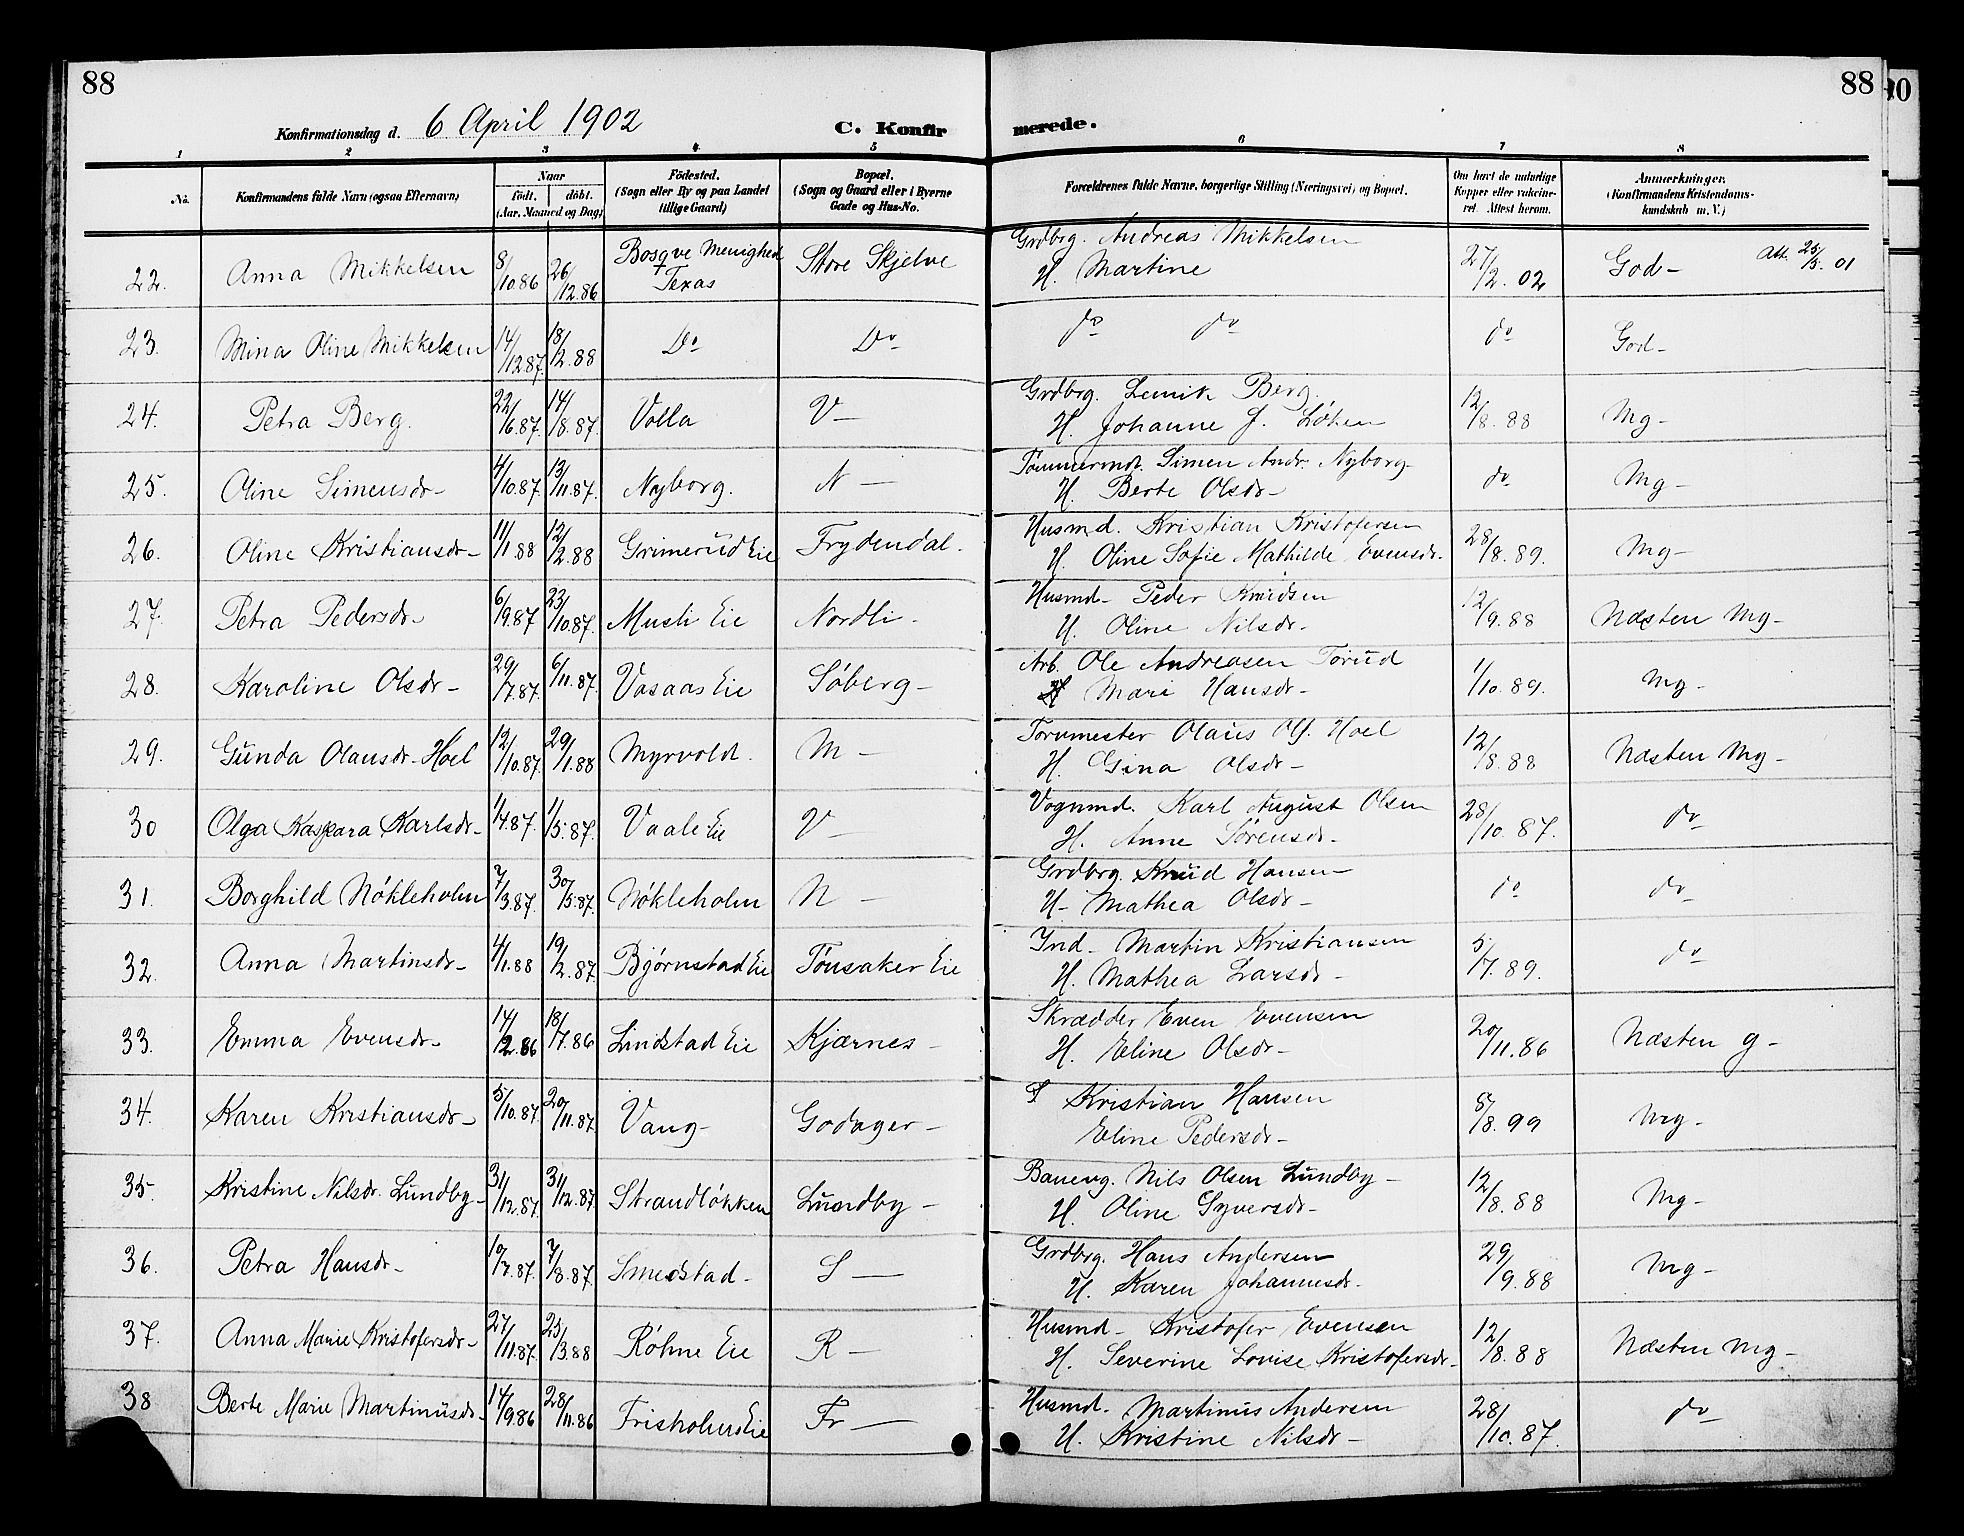 88
88
Konfirmationsdag d. 6 April 1902
C. Konfirmerede.
1 2 3 4 5 6 7 8
No. Konfirmandens fulde Navn (ogsaa Efternavn)
Naar født. døbt. (Aar, Maaned og Dag)
Födested. (Sogn eller By og paa Landet tillige Gaard)
Bopæl. (Sogn og Gaard eller i Byerne Gade og Hus-No.
Forældrenes fulde Navne, borgerlige Stilling (Næringsvei) og Bopæl.
Om havt de naturlige Kopper eller vakcineret. Attest herom.
Anmærkninger. (Konfirmandens Kristendomskundskab m. V.)
22. Anna Mikkelsen 8/10.86 26/12.86 Bosqve Menighed Texas Store Skjelve Grdbrg. Andreas Mikkelsen H. Martine 27/2.02 God- Att. 25/3.01
23. Mina Oline Mikkelsen 14/12.87. 18/2.88 Do Do do do do God-
24. Petra Berg. 22/6.87. 14/8.87. Volla V- Grdbrg. Lennik Berg. H. Johanne J. Løken 12/8.88 Mg-
25. Oline Simensdr- 4/10.87. 13/11.87. Nyborg. N- Tømmermd. Simen Andr. Nyborg- H. Berte Olsdr- do Mg-
26. Oline Kristiansdr- 11/1.88 12/2.88 Grimerud Eie Frydendal. Husmd. Kristian Kristofersen H. Oline Sofie Mathilde Evensdr. 28/8.89. Mg-
27. Petra Pedersdr- 6/9.87 23/10.87. Musli Eie Nordli- Husmd- Peder Knudsen H. Oline Nilsdr- 12/9.88 Næsten Mg-
28. Karoline Olsdr- 29/7.87. 6/11.87. Vasaas Eie Søberg- Arb. Ole Andreasen Torud H Mari Hansdr- 1/10.89. Mg-
29. Gunda Olausdr. Hoel 12/10.87. 29/1.88 Myrvold. M- Torvmester Olaus Ols. Hoel H. Gina Olsdr- 12/8.88 Næsten Mg-
30 Olga Kaspara Karlsdr- 1/4.87. 1/5.87. Vaale Eie V- Vognmd. Karl August Olsen H. Anne Sørensdr- 28/10.87. do
31. Borghild Nøkleholm 7/3.87. 30/5.87. Nøkleholm N- Grdbrg. Knud Hansen H- Mathea Olsdr- do do
32. Anna Martinsdr- 4/1.88 19/2.87. Bjørnstad Eie Tønsaker Eie Ind- Martin Kristiansen H. Mathea Larsdr- 5/7.89. do
33. Emma Evensdr- 14/2.86 18/7.86 Lindstad Eie Kjærnes- Skrædder Even Evensen H. Eline Olsdr- 20/11.86 Næsten g-
34. Karen Kristiansdr- 5/10.87. 20/11.87. Vang- Godager- Kristian Hansen Eline Pedersdr- 8/8.99 Mg-
35 Kristine Nilsdr. Lundby- 31/12.87. 31/12.87. Strandløkken Lundby- Banevg. Nils Olsen Lundby- H. Oline Syversdr- 12/8.88 Mg-
36. Petra Hansdr- 10/7.87. 7/8.87. Smedstad- S- Grdbrg. Hans Andersen H. Karen Johannesdr- 29/9.88 Mg-
37. Anna Marie Kristofersdr- 27/11.87. 25/3.88 Røhne Eie R- Husmd- Kristofer Evensen H. Severine Lovise Kristofersdr- 12/8.88 Næsten Mg-
38 Berte Marie Martinusdr- 14/9.86 28/11.86 Frisholm Eie Fr- Husmd. Martinus Andersen H. Kristine Nilsdr- 28/10.87. do